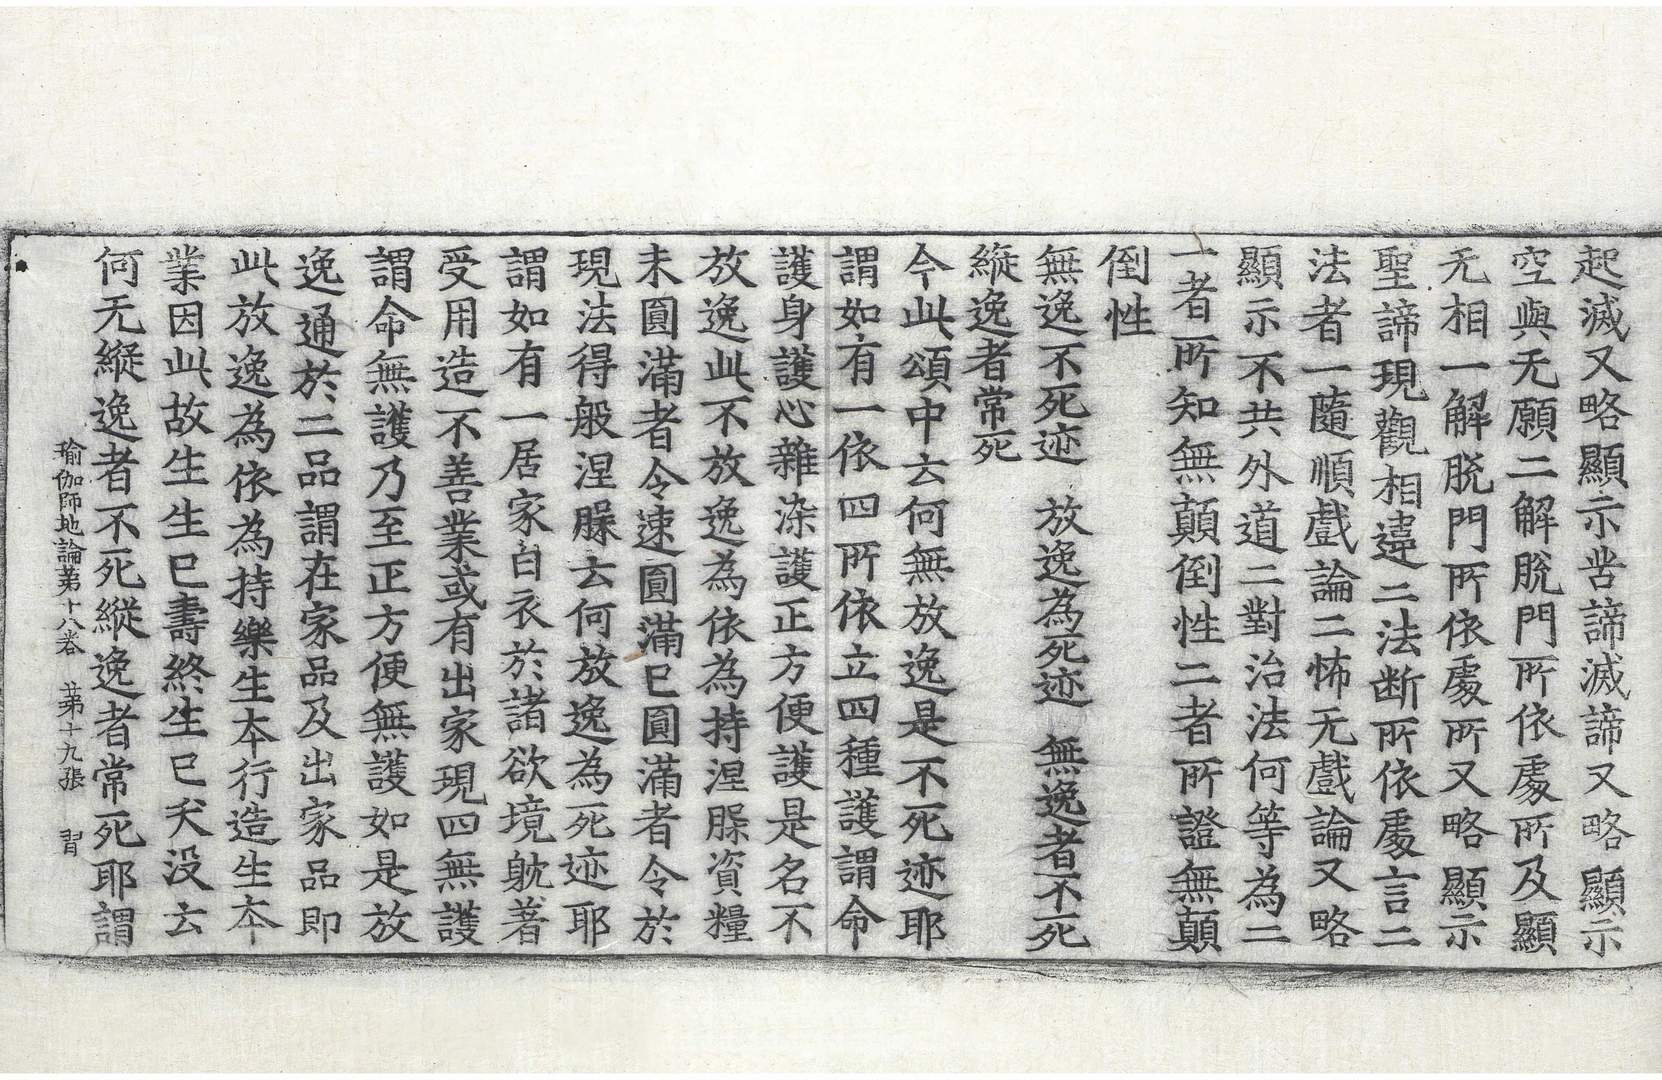 起滅又略顯示苦諦滅諦又略顯示
空與无願二解脫門所依處所及顯
无相一解脫門所依處所又略顯示
聖諦現觀相違二法断所依處言二
法者一隨順戲論二怖无戲論又略
顯示不共外道二對治法何等為二
一者所知無顛倒性二者所證無顛
倒性
無逸不死迹　放逸為死迹　無逸者不死
縱逸者常死
今此頌中云何無放逸是不死迹耶
謂如有一依四所依立四種護謂命
護身護心雜染護正方便護是名不
放逸此不放逸為依為持涅槃資糧
未圓滿者令速圓滿已圓滿者令於
現法得般涅槃云何放逸為死迹耶
謂如有一居家白衣於諸欲境躭著
受用造不善業或有出家現四無護
謂命無護乃至正方便無護如是放
逸通於二品謂在家品及出家品即
此放逸為依為持樂生夲行造生夲
業因此故生生已壽終生已夭没云
何无縱逸者不死縱逸者常死耶謂
瑜伽師地論苐十八卷　苐十九張　習